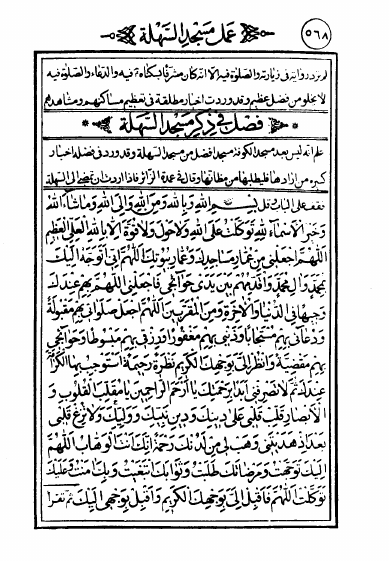 عمل مسجد السهلة
٥٦٨
لم يرد رواية في زيارته والصلوة فيه الا انه كان مشرفا بسكناه فيه والدفاء والصلوة فيه
لا يخلو من فضل عظيم وقد وردت اخبار مطلقة في تعظيم مساكنهم ومشاهدهم
فصل في ذكر مسجد السهلة
علم انه ليس بعد مسجد الكوفة مسجد افضل من مسجد السهلة وقد ورد في فضله اخبار
كثيرة من ارادها فليطلبها من مظانها وقال في عمدة الزائر فاذا اردت ان تمضى الى السهلة
فقف على الباب وقل بسم الله وبالله ومن الله والى الله وما شاء الله
وخير الاسماء لله توكلت على الله ولا حول ولا قوة الا بالله العلي العظيم
اللهم اجعلني من عمار مساجدك وعمار بيوتك اللهم اني اتوجه اليك
بمحمد وال محمد واقدمهم بين يدي حوائجي فاجعلني اللهم بهم عندك
وجيها في الدنيا والاخرة ومن المقربين اللهم اجعل صلواتي بهم مقبولة
ودعائي بهم مستجابا وذنبي بهم مغفورا ورزقي بهم مبسوطا وحوائجي
بهم مقضية وانظر الي بوجهك الكريم نظرة رحيمة استوجب بها الكرامة
عندك ثم لا تصرفني ابدا برحمتك يا ارحم الراحمين يا مقلب القلوب و
الابصار قلب قلبي على دينك ودين نبيك ووليك ولا تزغ قلبي
بعد اذ هديتني وهب لي من لدنك رحمة انك انت الوهاب اللهم
اليك توجهت ومرضاتك طلبت وثوابك ابتغيت وبك امنت وعليك
توكلت اللهم فاقبل الي بوجهك الكريم واقبل بوجهي اليك ثم تقرا